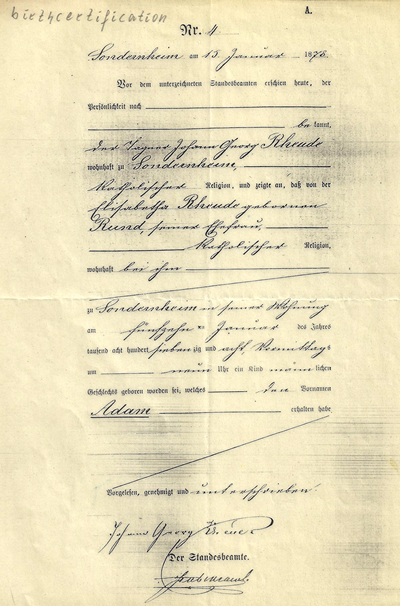 birthcertification
A.
Nr. 4
Sondernheim am 15. Januar 1878.
Vor dem unterzeichneten Standesbeamten erschien heute, der
Persönlichkeit nach
bekannt,
der Tagner Johann Georg Rheude
wohnhaft zu Sondernheim,
katholischer Religion, und zeigte an, daß von der
Elisabetha Rheude gebornen
Rund, seiner Ehefrau,
katholischer Religion,
wohnhaft bei ihm
zu Sondernheim in seiner Wohnung
am fünfzehn Januar des Jahres
tausend acht hundert siebenzig und acht, Vormittags
um neun Uhr ein Kind männlichen
Geschlechts geboren worden sei, welches den Vornamen
Adam erhalten habe
Vorgelesen, genehmigt und unterschrieben.
Johann Georg
Der Standesbeamte.